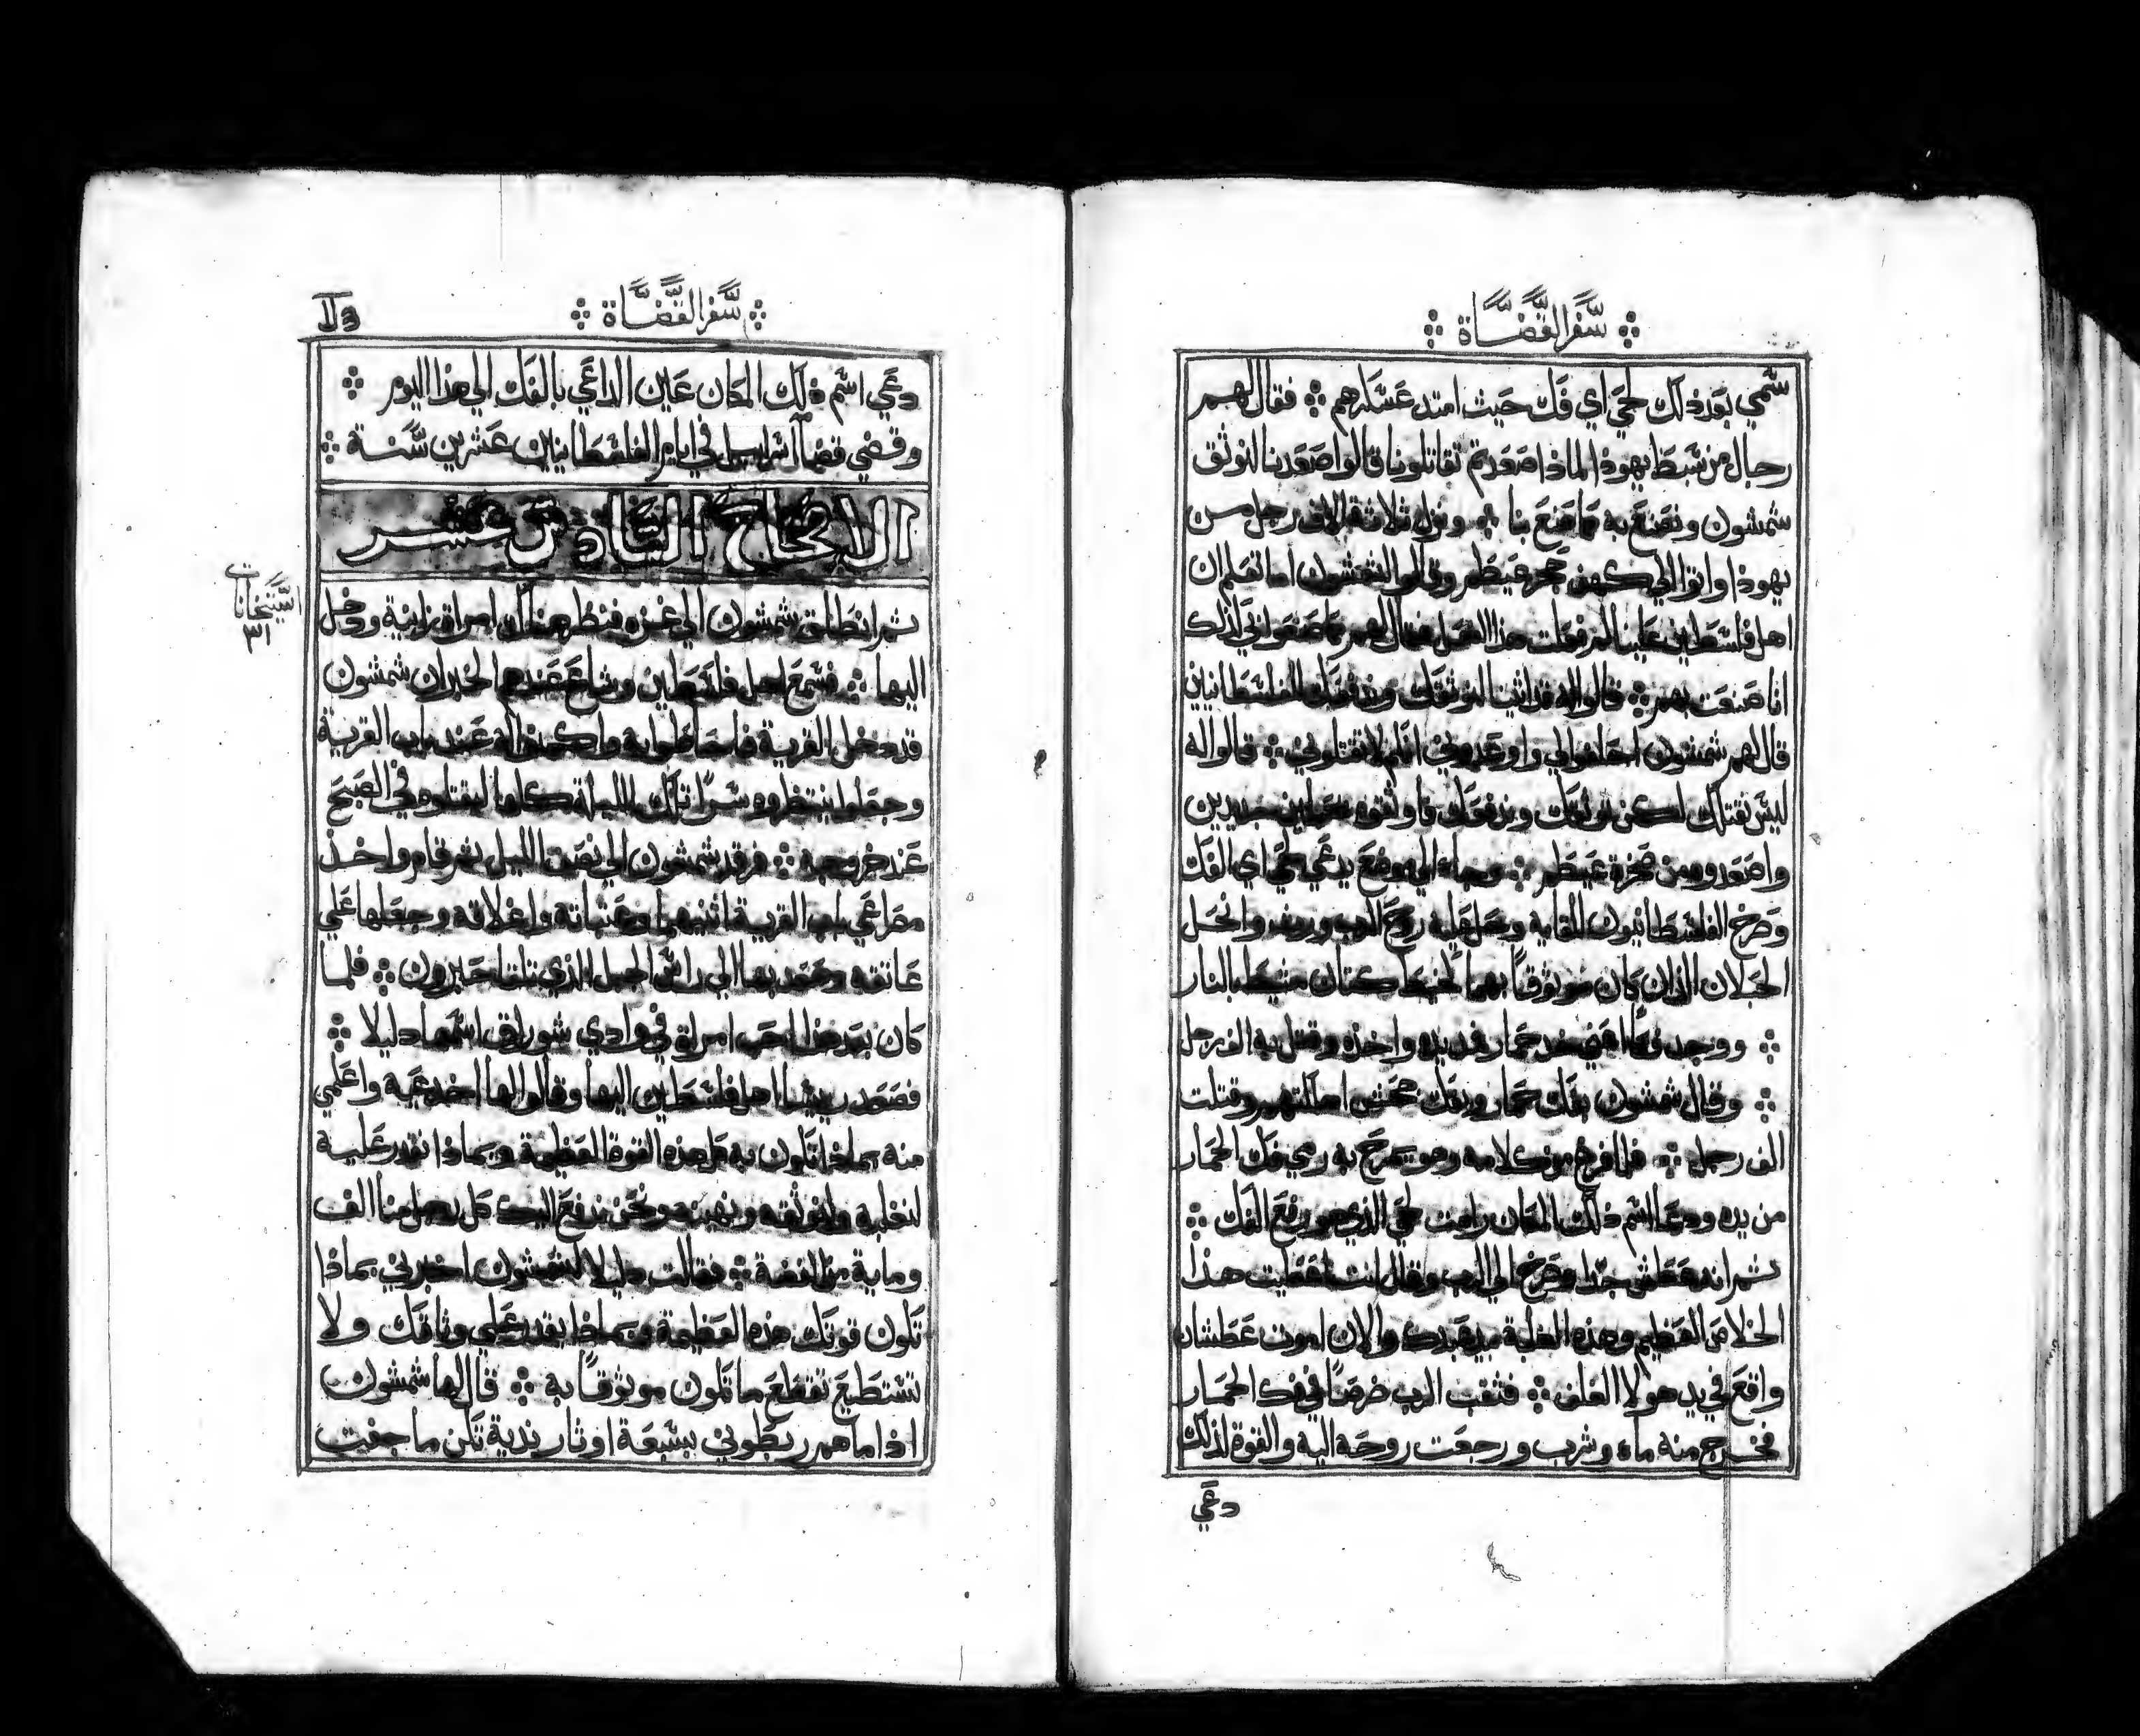 سفر القضاة
سمي بعد ذلك لحي اي فك حيث امتد عسكرهم فقال لهم
رجال من سبط يهوذا لماذا صعدتم تقاتلونا قالوا صعدنا لنوثق
شمشون ونصنع به ما صنع بنا ونزل ثلاثة الاف رجل من
يهوذا واتوا الي كهف حجر عيطم وقالوا لشمشون اما تعلم ان
اهل فلسطين علينا لم فعلت هذا الفعل فقال لهم ما صنعوا بي كذلك
انا صنعت بهم قالوا له قد اتينا لنوثقك وندفعك للفلسطانيين
قال لهم شمشون احلفوا لي واوعدوني انكم لا تقتلوني قالوا له
ليس نقتلك لكن نوثقك وندفعك فاوثقوه بحبلين جديدين
واصعدوه من صخرة عيطم وجاء الي موضع يدعي لحي اي الفك
وصرخ الفلسطانيون للقايه وحل عليه روح الرب وروف وانحل
الحبلان الذان كان موثوقا بهما كخيط كتان مشيط بالنار
ووجد فكا اعني خد حمار فمد يده واخذه وقتل به الف رجل
وقال شمشون بفك حمار وبفك جحش اهلكتهم وقتلت
الف رجل فلما فرغ من كلامه وهو يمرح به رمي فك الحمار
من يده ودعا اسم ذلك المكان رامت لحي الذي هو رفع الفك
ثم انه عطش جدا وصرخ الي الرب وقال انت اعطيت هذا
الخلاص العظيم وهذه الغلبة بيد عبدك والان اموت عطشان
واقع في يد هولا الغلف فثقب الرب ضرصا في فك الحمار
فخرج منه ماء وشرب ورجعت روحه اليه والقوة لذلك
دعي
سفر القضاة
دعي اسم ذلك المكان عين الداعي بالفك الي هذا اليوم
وقضي قضا اسراييل في ايام الفلسطانيين عشرين سنة
الاصحاح السادس عشر
السنخانات
٣١
ثم انطلق شمشون الي غزه فنظر هناك امراة زانية ودخل
اليها فسمع اهل فلسطين وشاع عندهم الخبر ان شمشون
قد دخل القرية فاحاطوا به واكمنوا له عند باب القرية
وجعلوا ينتظروه سرا تلك الليلة كلها ليقتلوه في الصبح
عند خروجه فرقد شمشون الي نصف الليل ثم قام واخذ
مصراعي باب القرية اثنيهما وعتباته واغلاقه وجعلها علي
عاتقه وصعد بها الي راس الجبل الذي تلقا حبرون فلما
كان بعد هذا احب امراة في وادي شوراق اسمها دليلا
فصعد رييسا اهل فلسطين اليها وقالوا لها اخدعيه واعلمي
منه بماذا تكون به كل هذه القوة العظيمة وبماذا نقدر عليه
لنغلبه ولنوثقه ونهينه ونحن ندفع اليك كل رجل منا الف
وماية من الفضة فقالت دليلا لشمشون اخبرني بماذا
تكون قوتك هذه العظيمة وبماذا يقدر علي وثاقك ولا
تستطيع تقطع ما تكون موثوقا به قال لها شمشون
اذا ما هم ربطوني بسبعة اوتار ندية تكن ما جفيت